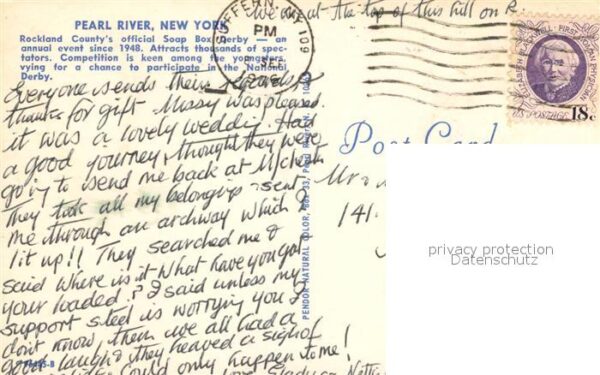 We are at the top of this hill on R.
PEARL RIVER, NEW YORK
Rockland County's official Soap Box Derby — an
annual event since 1948. Attracts thousands of spec-
tators. Competition is keen among the youngsters
vying for a chance to participate in the National
Derby.
SUFFERN, NY 109
PM
ELIZABETH BLACKWELL - FIRST WOMAN PHYSICIAN
US POSTAGE 18c
Everyone sends their regards &
thanks for gift Missy was pleased.
it was a lovely wedding. Had
a good yourney, thought they were
going to send me back at M/chester
They take all my belongings & sent
me through an archway which
lit up!! They searched me &
said where is it what have you got
your loaded? I said unless my
support steel is worrying you I
don't know, then we all had a
good laugh & they heaved a sigh of
could only happen to me!
love
Post Card
PENDOR NATURAL COLOR, PEARL RIVER, N.Y.
Mr &
141.
privacy protection
Datenschutz